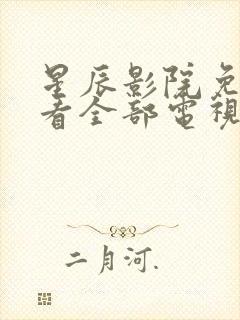 星辰影院免
看全部電視
二月河.